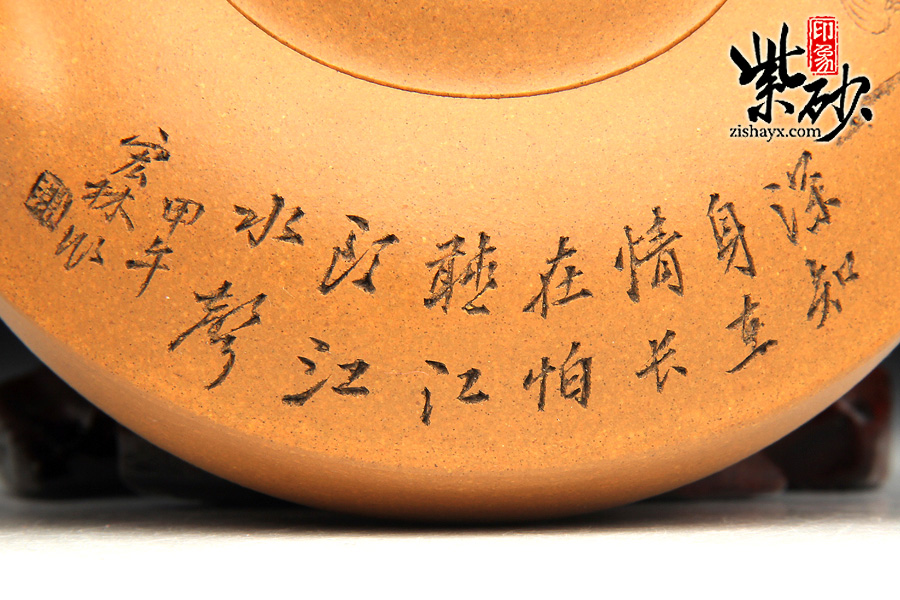 深知
身在
情长
在怕
聽江
頭江
水聲
甲午
宏林
紫砂
印象
zishayx.com